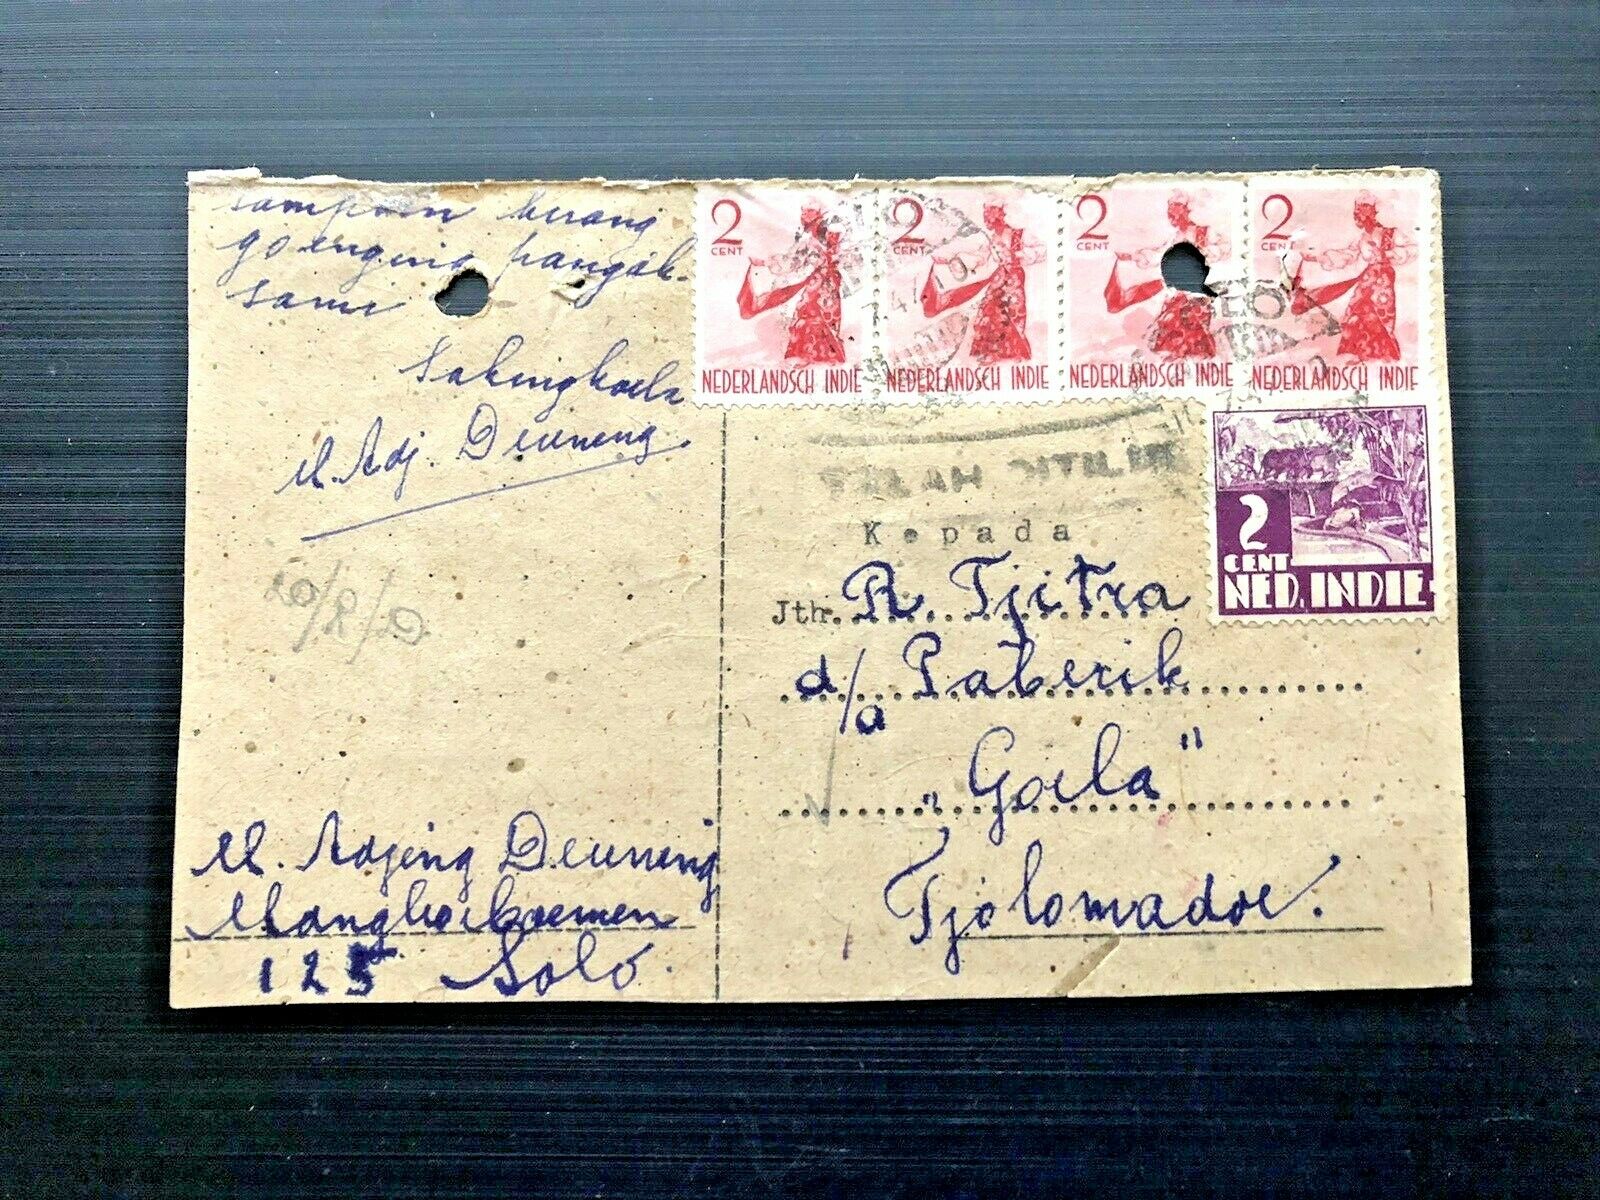 goenging pangak-
sami
Sakingkoela
M. Adj. Deuneng.
M. Adjeng Deuneng
Mangkoekoemen
125 Solo.
2 CENT NEDERLANDSCH INDIE
2 CENT NEDERLANDSCH INDIE
2 CENT NEDERLANDSCH INDIE
2 CENT NEDERLANDSCH INDIE
SOLO
2 CENT NED. INDIE
TELAH DITILIK
Kepada
Jth. R. Tjitra
d/a Paberik
„Goela"
Tjolomadoe.